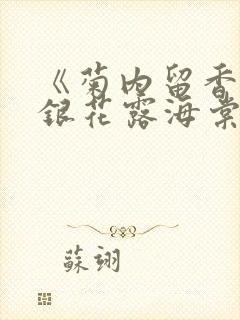 《菊内留香
銀花露海棠
蘇翊